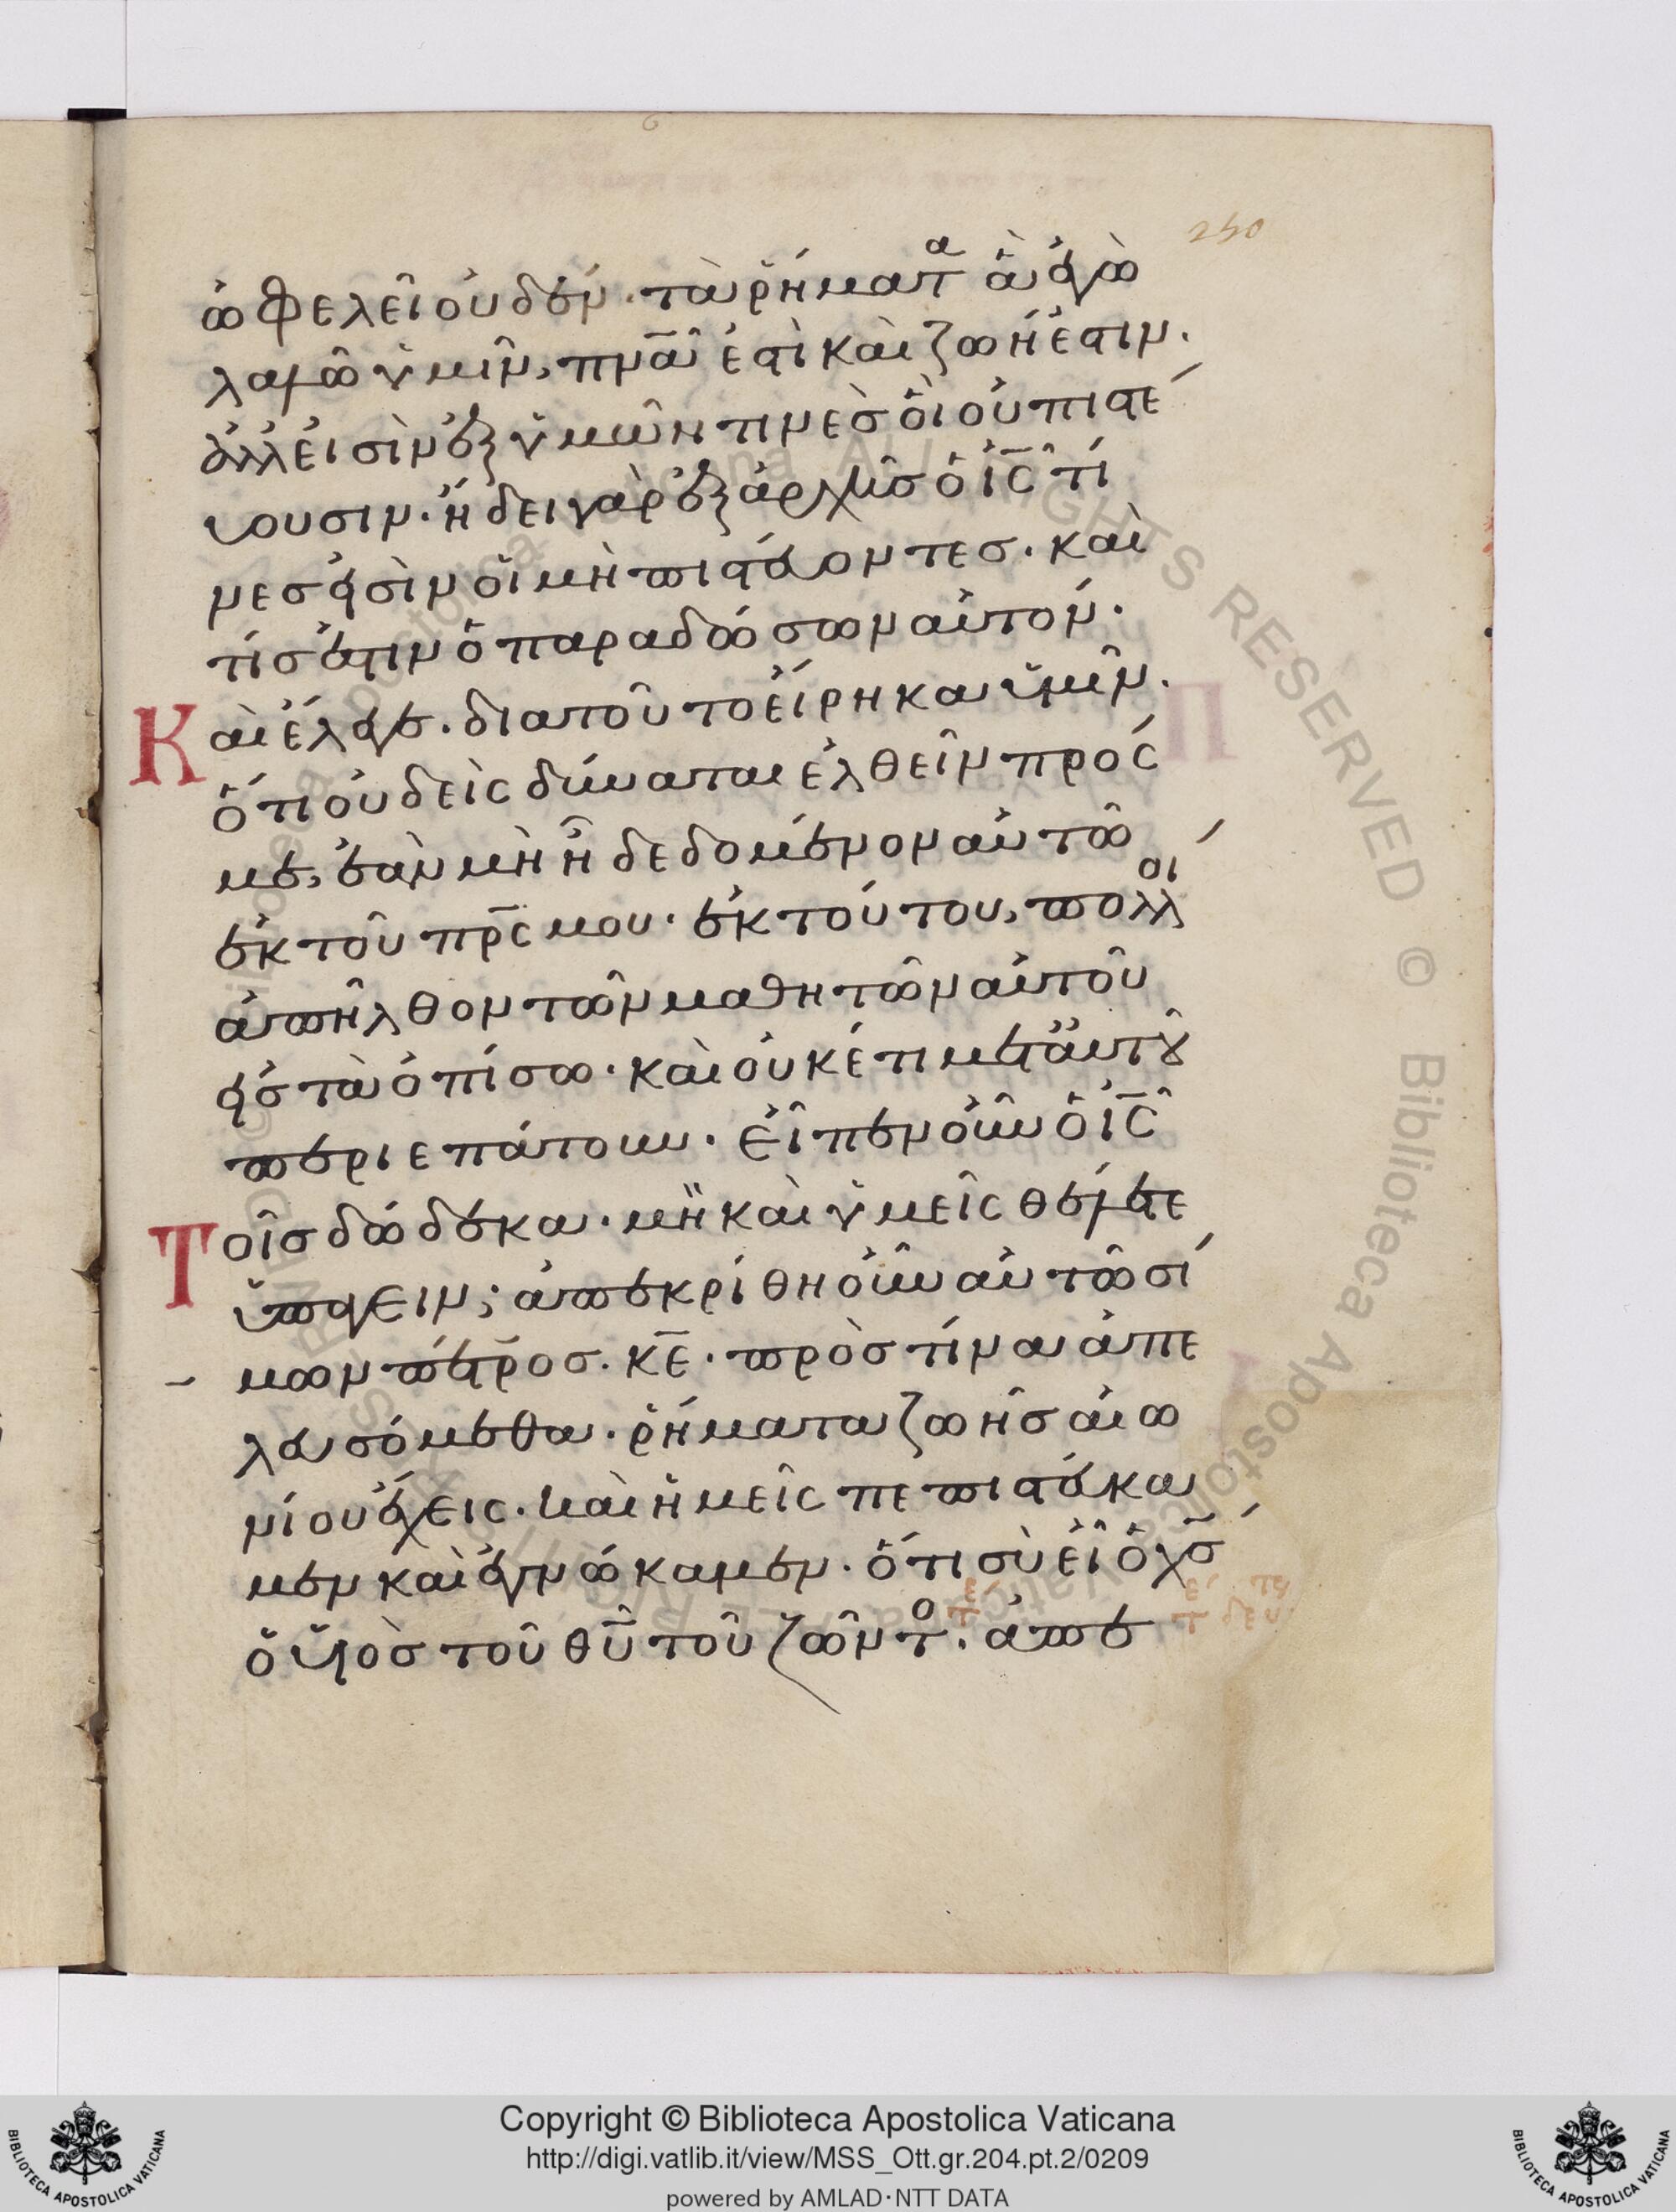 250
ὠφελεῖ οὐδέν· τὰ ῥήματα ἃ ἐγὼ
λαλῶ ὑμῖν, πν̅α ἐστὶ καὶ ζωή ἐστιν.
ἀλλ' εἰσὶν ἐξ ὑμῶν τινὲς οἳ οὐ πιστέ
υουσιν· ἤδει γὰρ ἐξ ἀρχῆς ὁ ι̅ς̅ τί
νες εἰσὶν οἱ μὴ πιστεύοντες· καὶ
τίς ἐστιν ὁ παραδώσων αὐτόν·
Καὶ ἔλεγε· διατοῦτο εἴρηκα ὑμῖν·
ὅτι οὐδεὶς δύναται ἐλθεῖν πρός
με, ἐὰν μὴ ᾖ δεδομένον αὐτῶ
ἐκ τοῦ πρ̅ς μου· ἐκ τούτου, πολλοὶ
ἀπῆλθον τῶν μαθητῶν αὐτοῦ
εἰς τὰ ὀπίσω· καὶ οὐκέτι μετ' αὐτοῦ
περιεπάτουν· εἶπεν οὖν ὁ ι̅ς̅
Τοῖς δώδεκα· μὴ καὶ ὑμεῖς θέλετε
ὑπάγειν; ἀπεκρίθη οὖν αὐτῶ σί
μων πέτρος· κ̅ε̅· πρὸς τίνα ἀπε
λευσόμεθα· ῥήματα ζωῆς αἰω
νίου ἔχεις· καὶ ἡμεῖς πεπιστεύκα
μεν καὶ ἐγνώκαμεν· ὅτι σὺ εἶ ὁ χ̅ς̅
ὁ υἱὸς τοῦ θ̅υ̅ τοῦ ζῶντο· ἀπε
Copyright © Biblioteca Apostolica Vaticana
http://digi.vatlib.it/view/MSS_Ott.gr.204.pt.2/0209
powered by AMLAD·NTT DATA
BIBLIOTECA APOSTOLICA VATICANA
BIBLIOTECA APOSTOLICA VATICANA